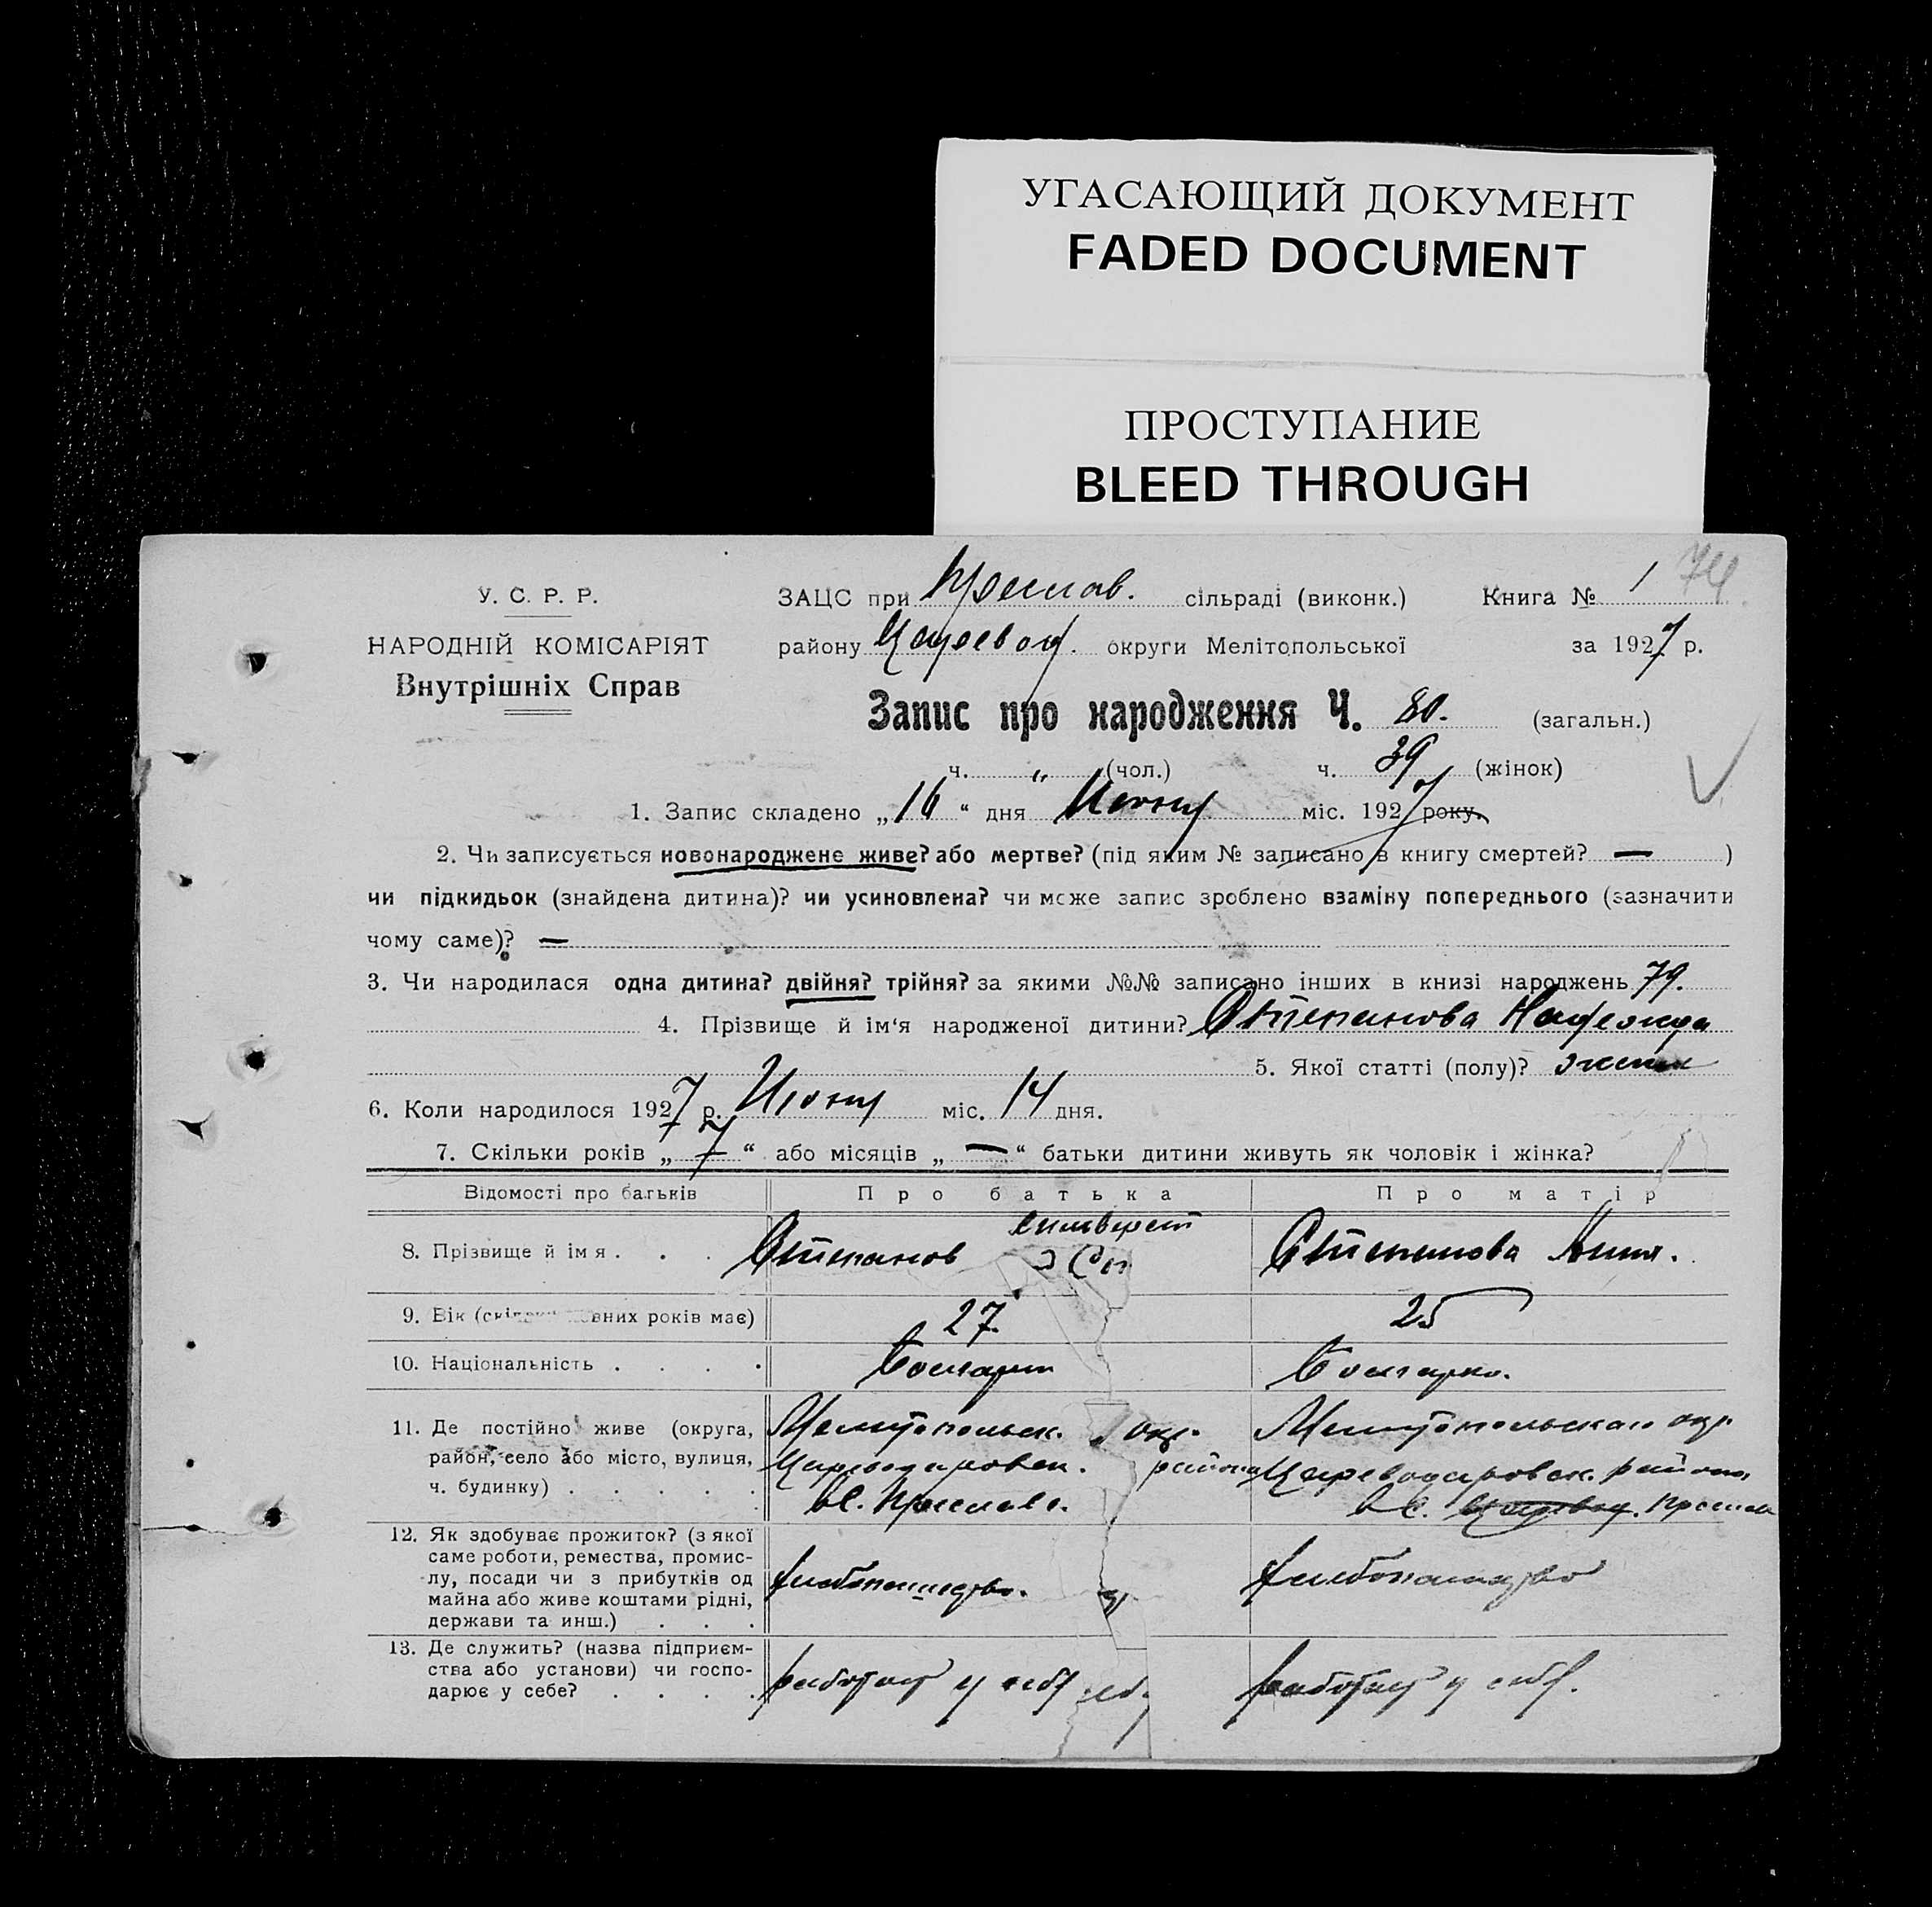 УГАСАЮЩИЙ ДОКУМЕНТ
FADED DOCUMENT
ПРОСТУПАНИЕ
BLEED THROUGH
У. С. Р. Р.
НАРОДНІЙ КОМІСАРІЯТ
Внутрішніх Справ
ЗАЦС при Преслав. сільраді (виконк.) Книга № 1 74
району Царевод. округи Мелітопольської за 1927 р.
Запис про народження Ч. 80. (загальн.)
ч. „ (чол.) ч. 39 (жінок)
1. Запис складено „16“ дня Июня міс. 1927 року.
2. Чи записується новонароджене живе? або мертве? (під яким № записано в книгу смертей? — )
чи підкидьок (знайдена дитина)? чи усиновлена? чи може запис зроблено взаміну попереднього (зазначити
чому саме)? —
3. Чи народилася одна дитина? двійня? трійня? за якими №№ записано інших в книзі народжень 79.
4. Прізвище й ім‘я народженої дитини? Степанова Надежда
5. Якої статті (полу)? женск
6. Коли народилося 1927 р. Июня міс. 14 дня.
7. Скільки років „7“ або місяців „—“ батьки дитини живуть як чоловік і жінка?
Відомості про батьків Про батька Про матір
8. Прізвище й ім я . . . Степанов Сильверст Степанова Анна.
9. Вік (скільки повних років має) 27. 25
10. Національність . . . . Болгарин Болгарка.
11. Де постійно живе (округа,
район, село або місто, вулиця,
ч. будинку) . . . . .
Мелитопольск. окр.
Цареводаровск. района
С. Преслав.
Мелитопольская окр.
Цареводаровск. района
С. Царевод. Преслав
12. Як здобуває прожиток? (з якої
саме роботи, ремества, промис-
лу, посади чи з прибутків од
майна або живе коштами рідні,
держави та инш.) . . .
хлебопашество. хлебопашество
13. Де служить? (назва підприєм-
ства або установи) чи госпо-
дарює у себе? . . . .
работает у себя работает у себя.